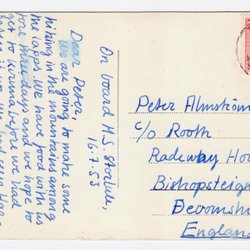 On board M.S. Storlule,
16.7.53
Dear Peter,
We are going to make some
hiking in the mountains among
the lapps. We have food with us
for three days and we hope to
get to
before we had
Peter Almström
c/o Rooth
Radeway Hou
Bishopsteign
Devonshi
England